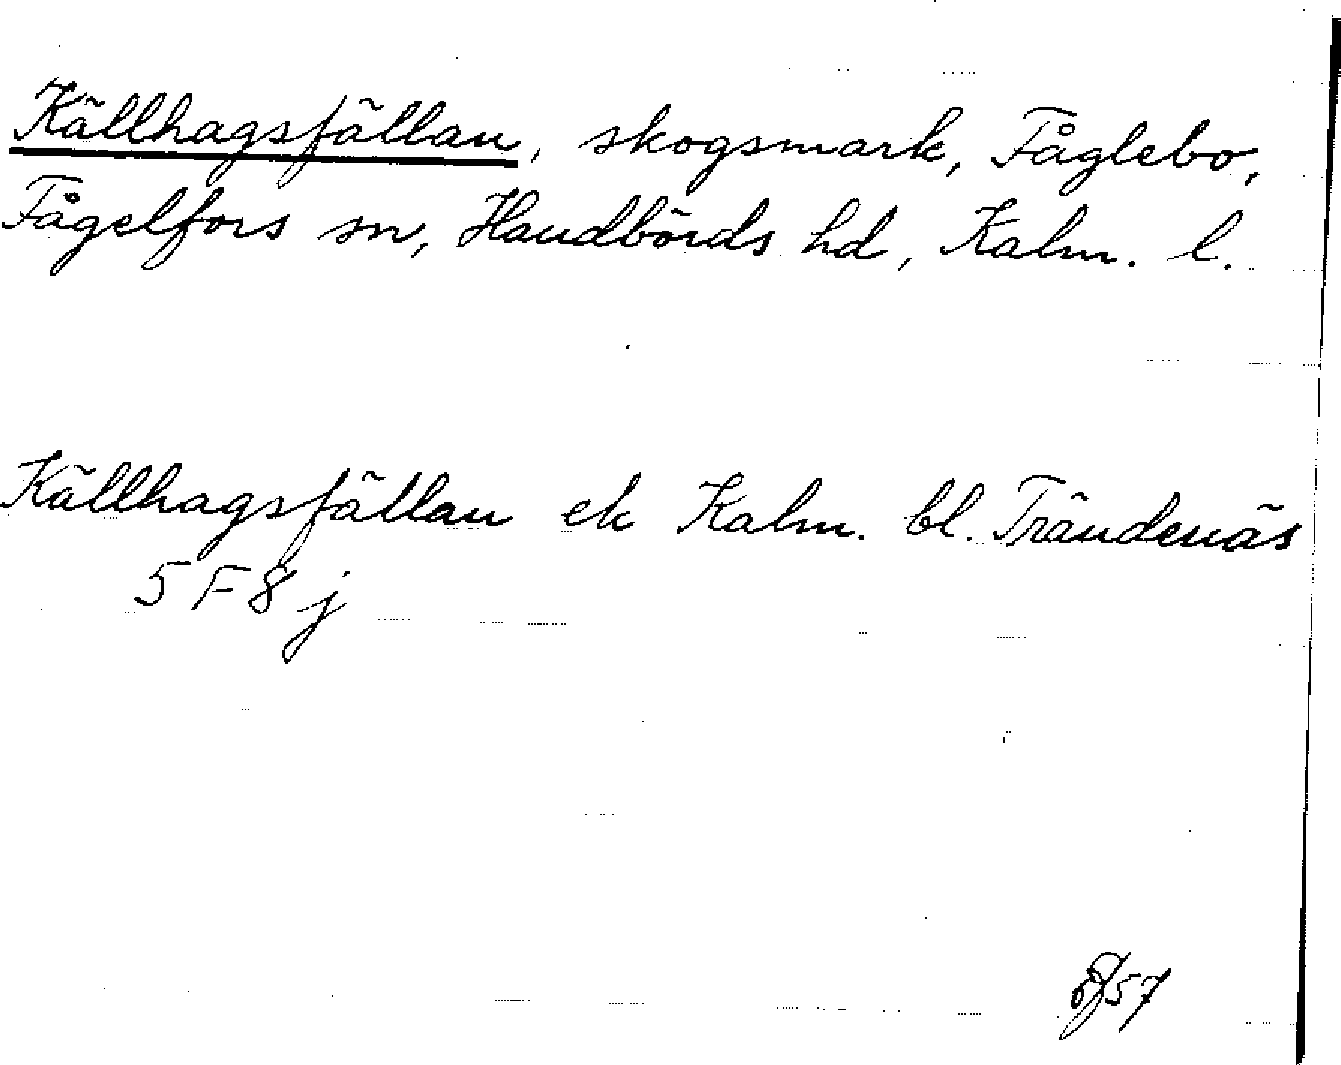 Källhagsfällan, skogsmark, Fåglebo,
Fågelfors sn, Handbörds hd, Kalm. l.
Källhagsfällan ek Kalm. bl. Trändenäs
5 F 8 j